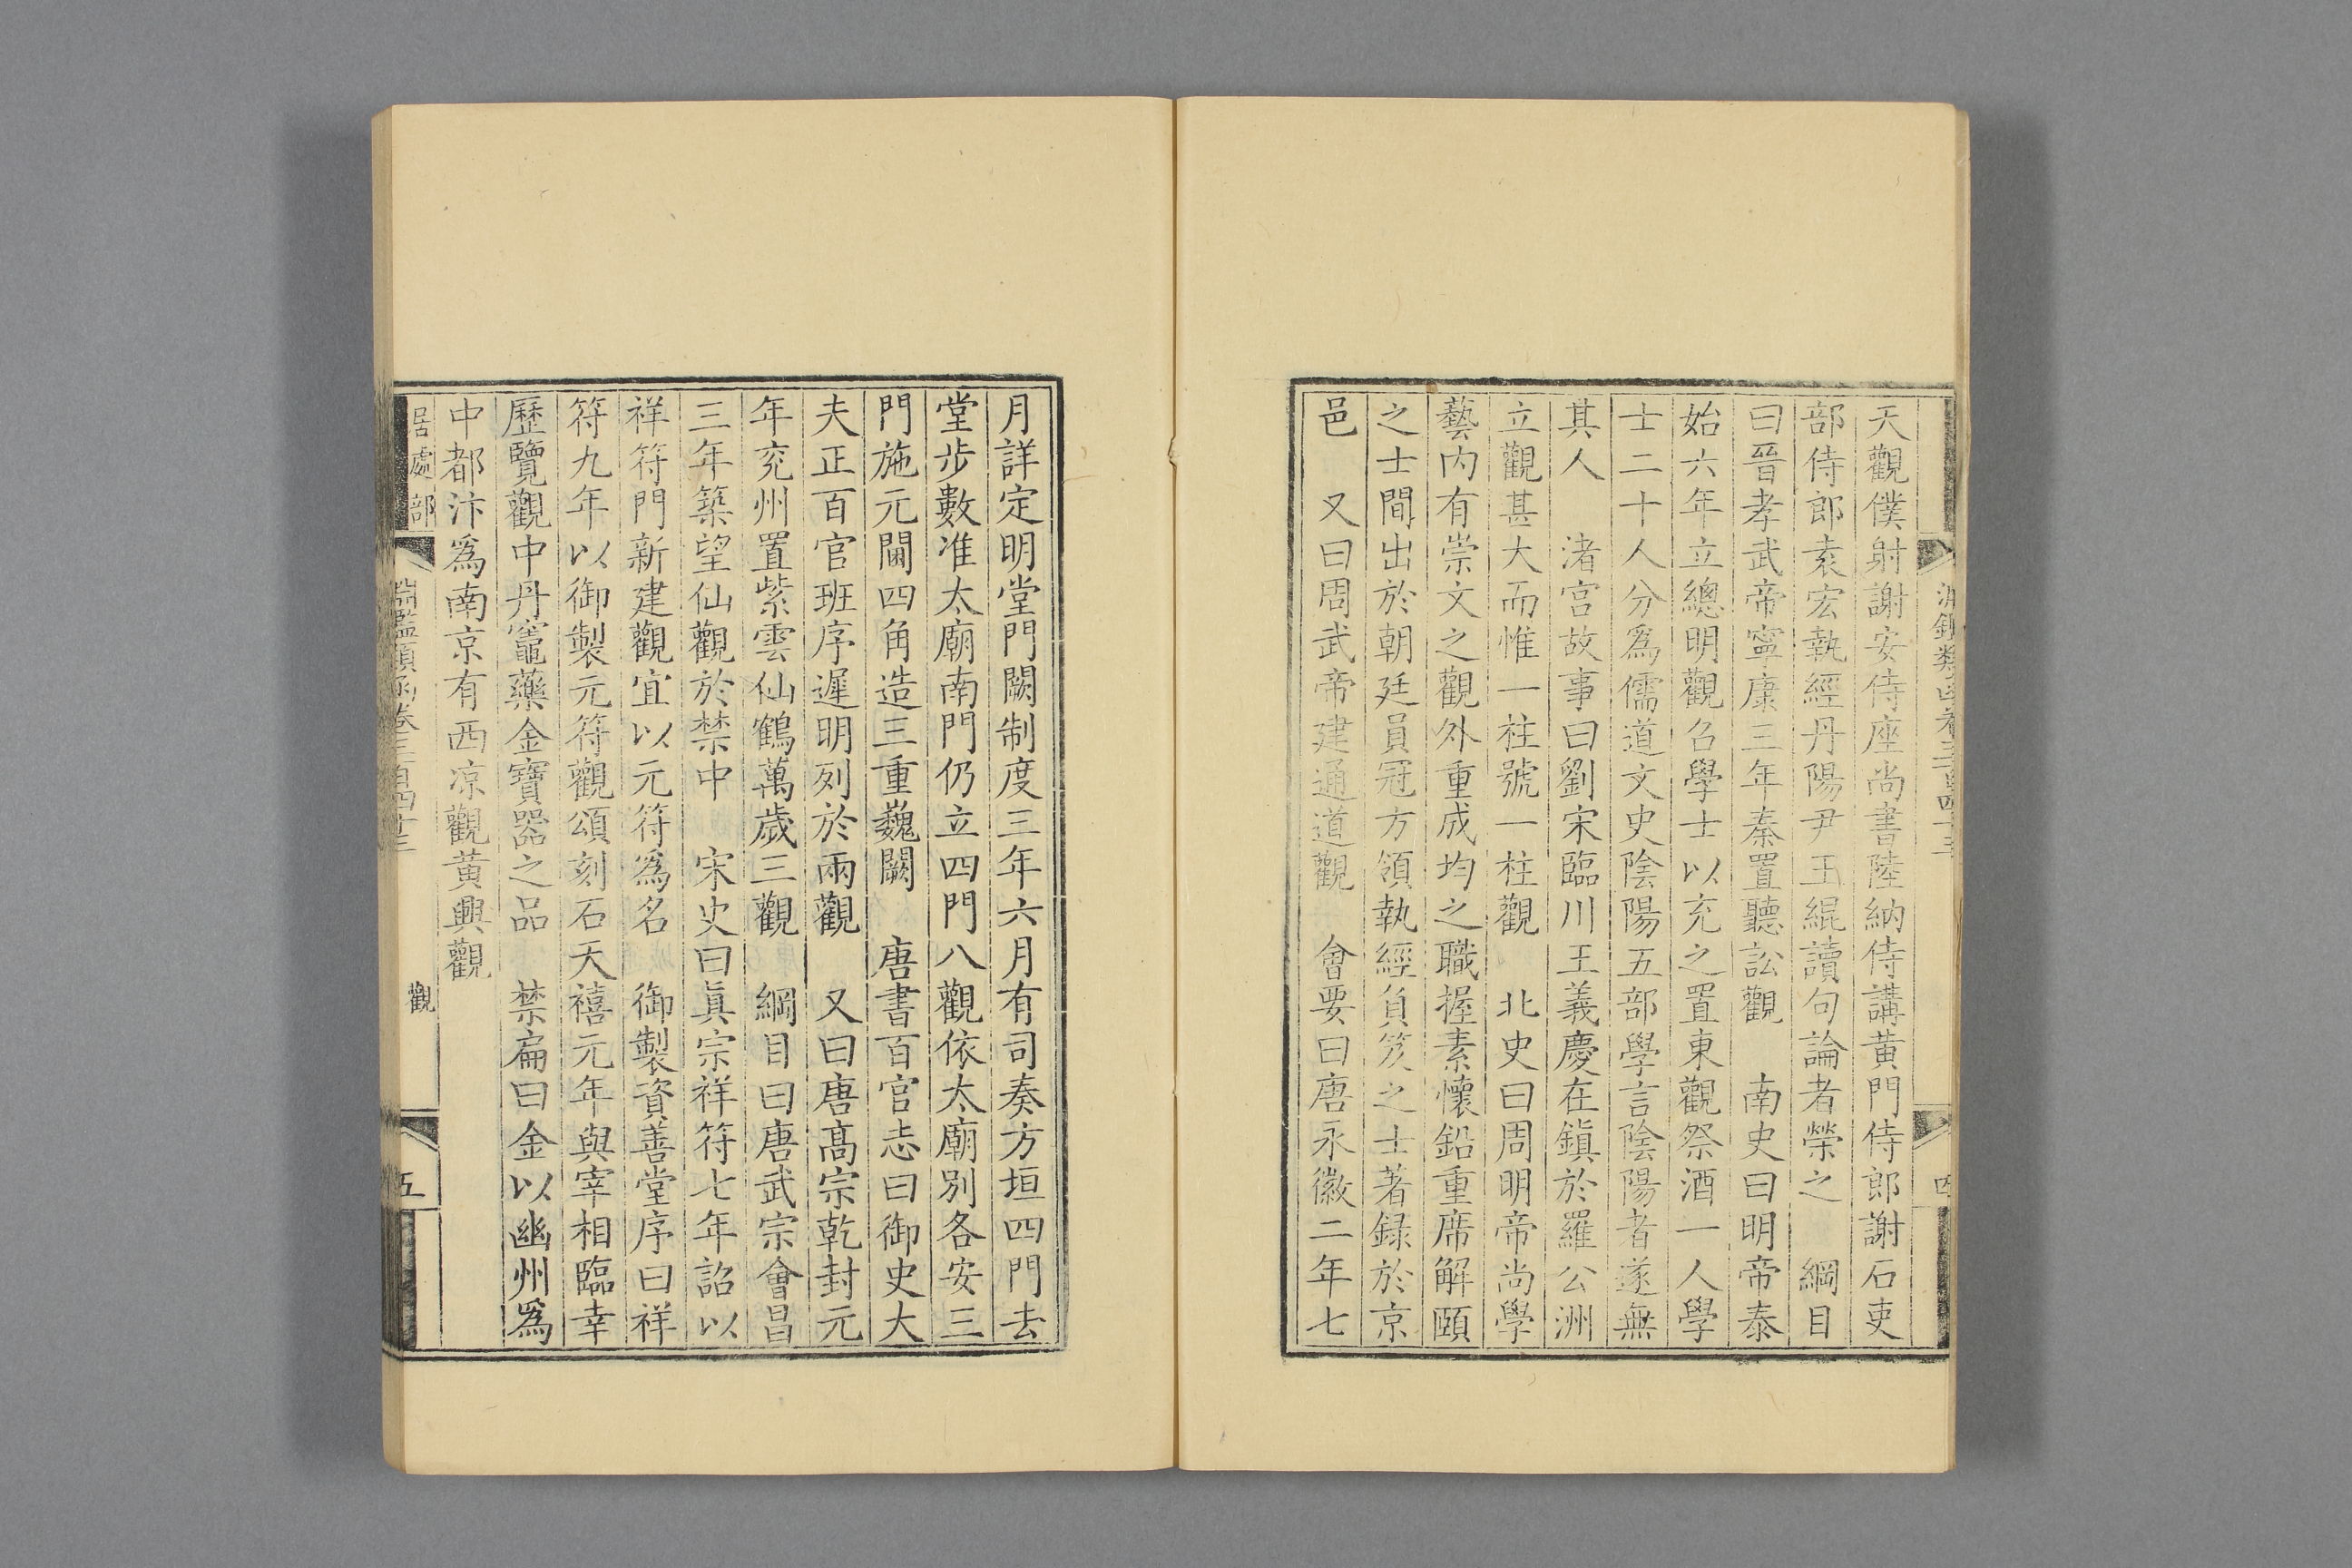 天觀僕射謝安侍座尚書陸納侍講黃門侍郎謝石吏
部侍郎袁宏執經丹陽尹王緄讀句論者榮之 綱目
曰晉孝武帝寧康三年秦置聽訟觀 南史曰明帝泰
始六年立總明觀召學士以充之置東觀祭酒一人學
士二十人分爲儒道文史陰陽五部學言陰陽者遂無
其人 渚宮故事曰劉宋臨川王義慶在鎮於羅公洲
立觀甚大而惟一柱號一柱觀 北史曰周明帝尚學
藝內有崇文之觀外重成均之職握素懷鉛重席解頤
之士間出於朝廷員冠方領執經負笈之士著録於京
邑 又曰周武帝建通道觀 會要曰唐永徽二年七
月詳定明堂門闕制度三年六月有司奏方垣四門去
堂步數准太廟南門仍立四門八觀依太廟別各安三
門施元闑四角造三重巍闕 唐書百官志曰御史大
夫正百官班序遲明列於兩觀 又曰唐高宗乾封元
年兖州置紫雲仙鶴萬歲三觀 綱目曰唐武宗會昌
三年築望仙觀於禁中 宋史曰眞宗祥符七年詔以
祥符門新建觀宜以元符爲名 御製資善堂序曰祥
符九年以御製元符觀頌刻石天禧元年與宰相臨幸
歷覽觀中丹竈藥金寶器之品 禁扁曰金以幽州爲
中都汴爲南京有西凉觀黃興觀
居處部
淵鑑類函卷三百四十三
觀
五